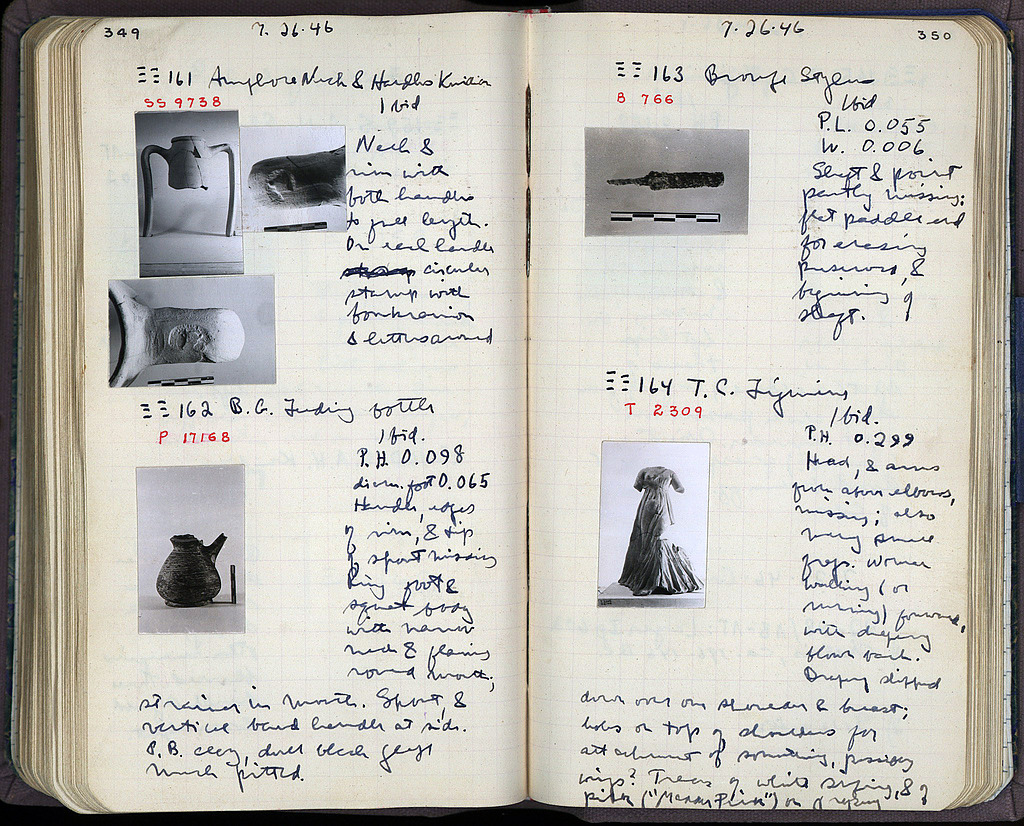 349
7.26.46
ΞΞ 161 Amphora Neck & Handles Knidian
SS 9738
Ibid
Neck &
rim with
both handles
to full length.
On each handle
circular
stamp with
boukranion
& letters around
ΞΞ 162 B.G. Feeding bottle
P 17168
Ibid.
P.H. 0.098
diam. foot 0.065
Handle, edges
of rim, & tip
of spout missing
Ring foot &
squat body
with narrow
neck & flaring
round mouth;
strainer in mouth. Spout, &
vertical band handle at side.
P.B. clay, dull black glaze
much pitted.
7.26.46
350
ΞΞ 163 Bronze Stylus
B 766
Ibid
P.L. 0.055
W. 0.006
Shaft & point
partly missing;
flat paddle end
for erasing
preserved, &
beginning of
shaft.
ΞΞ 164 T.C. Figurine
T 2309
Ibid.
P.H. 0.299
Head, & arms
from above elbows,
missing; also
many small
frags. Woman
walking (or
running) forward,
with drapery
blown back.
Drapery slipped
down over one shoulder & breast;
holes on top of shoulders for
attachment of something, possibly
wings? Traces of white sizing, & of
pink ("Mammy Pink") on drapery